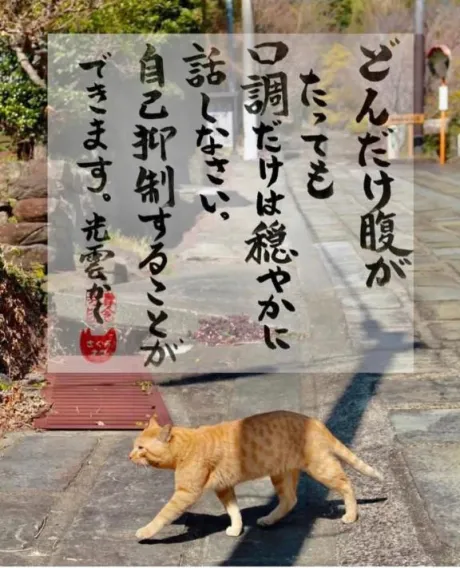 どんだけ腹が
たっても
口調だけは穏やかに
話しなさい。
自己抑制することが
できます。光雲かく